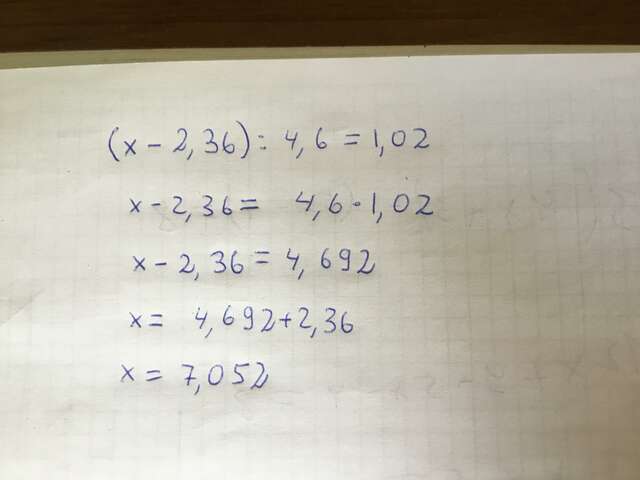 (x - 2,36) : 4,6 = 1,02
x - 2,36 = 4,6 · 1,02
x - 2,36 = 4,692
x = 4,692 + 2,36
x = 7,052